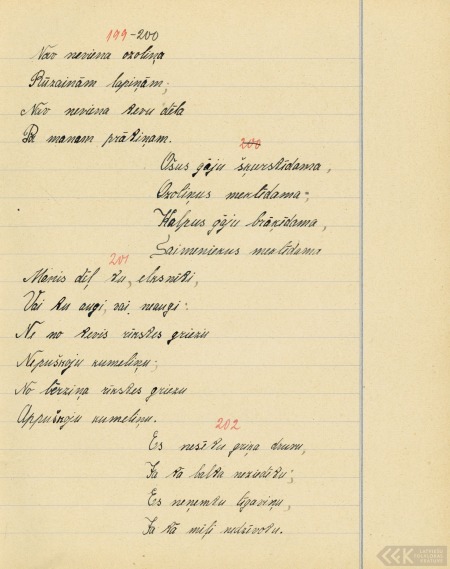 199-200
Nav neviena ozoliņa
Rūzainām lapiņām;
Nav neviena tevu dēla
Pa manam prātiņam.
200
Ošus gāju šķurstīdama,
Ozoliņus meklēdama;
Kalpus gāju brāķēdama,
Saimeniekus meklēdama
201
Manis dēļ tu, elksnīti,
Vai tu augi, vai neaugi:
Ne no tevis rīkstes griezu
Nepuškoju kumeliņu;
No bērziņa rīkstes griezu
Appuškoju kumeliņu.
202
Es nesētu griķa druvu,
Ja tā balta neziedētu;
Es neņemtu līgaviņu,
Ja tā mīļi nedzīvotu.
LATVIEŠU
FOLKLORAS
KRĀTUVE